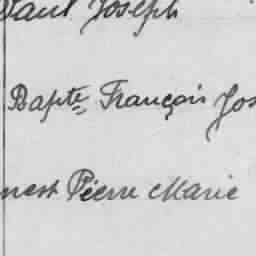 Paul Joseph
Bapte François Jos
nest Pierre Marie